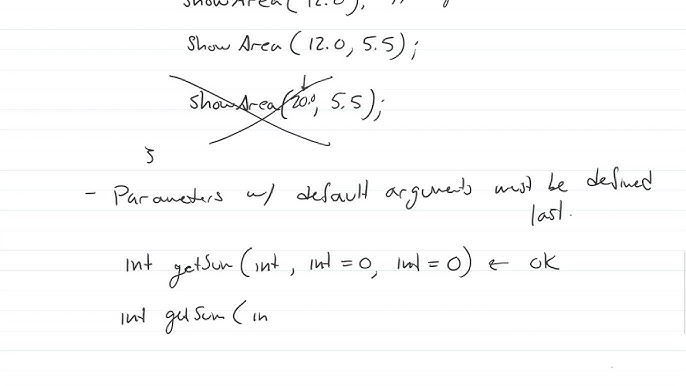 showArea(12.0);
showArea(12.0, 5.5);
showArea(20.0, 5.5);
}
- Parameters w/ default arguments must be defined
last.
int getSum(int, int=0, int=0) ← OK
int getSum(in